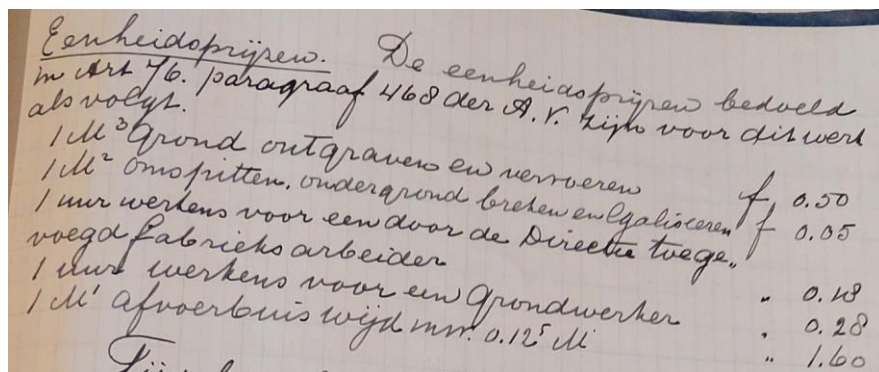 Eenheidsprijzen. De eenheidsprijzen bedoeld
in Art 76. paragraaf 468 der A.V. zijn voor dit werk
als volgt.
1 M³ grond ontgraven en vervoeren f 0.50
1 M² omspitten, ondergrond breken en Egaliseeren f 0.05
1 uur werkens voor een door de Directie toege„
voegd fabrieksarbeider „ 0.18
1 uur werkens voor een Grondwerker „ 0.28
1 M¹ afvoerbuis wijd inw. 0.12⁵ M „ 1.60